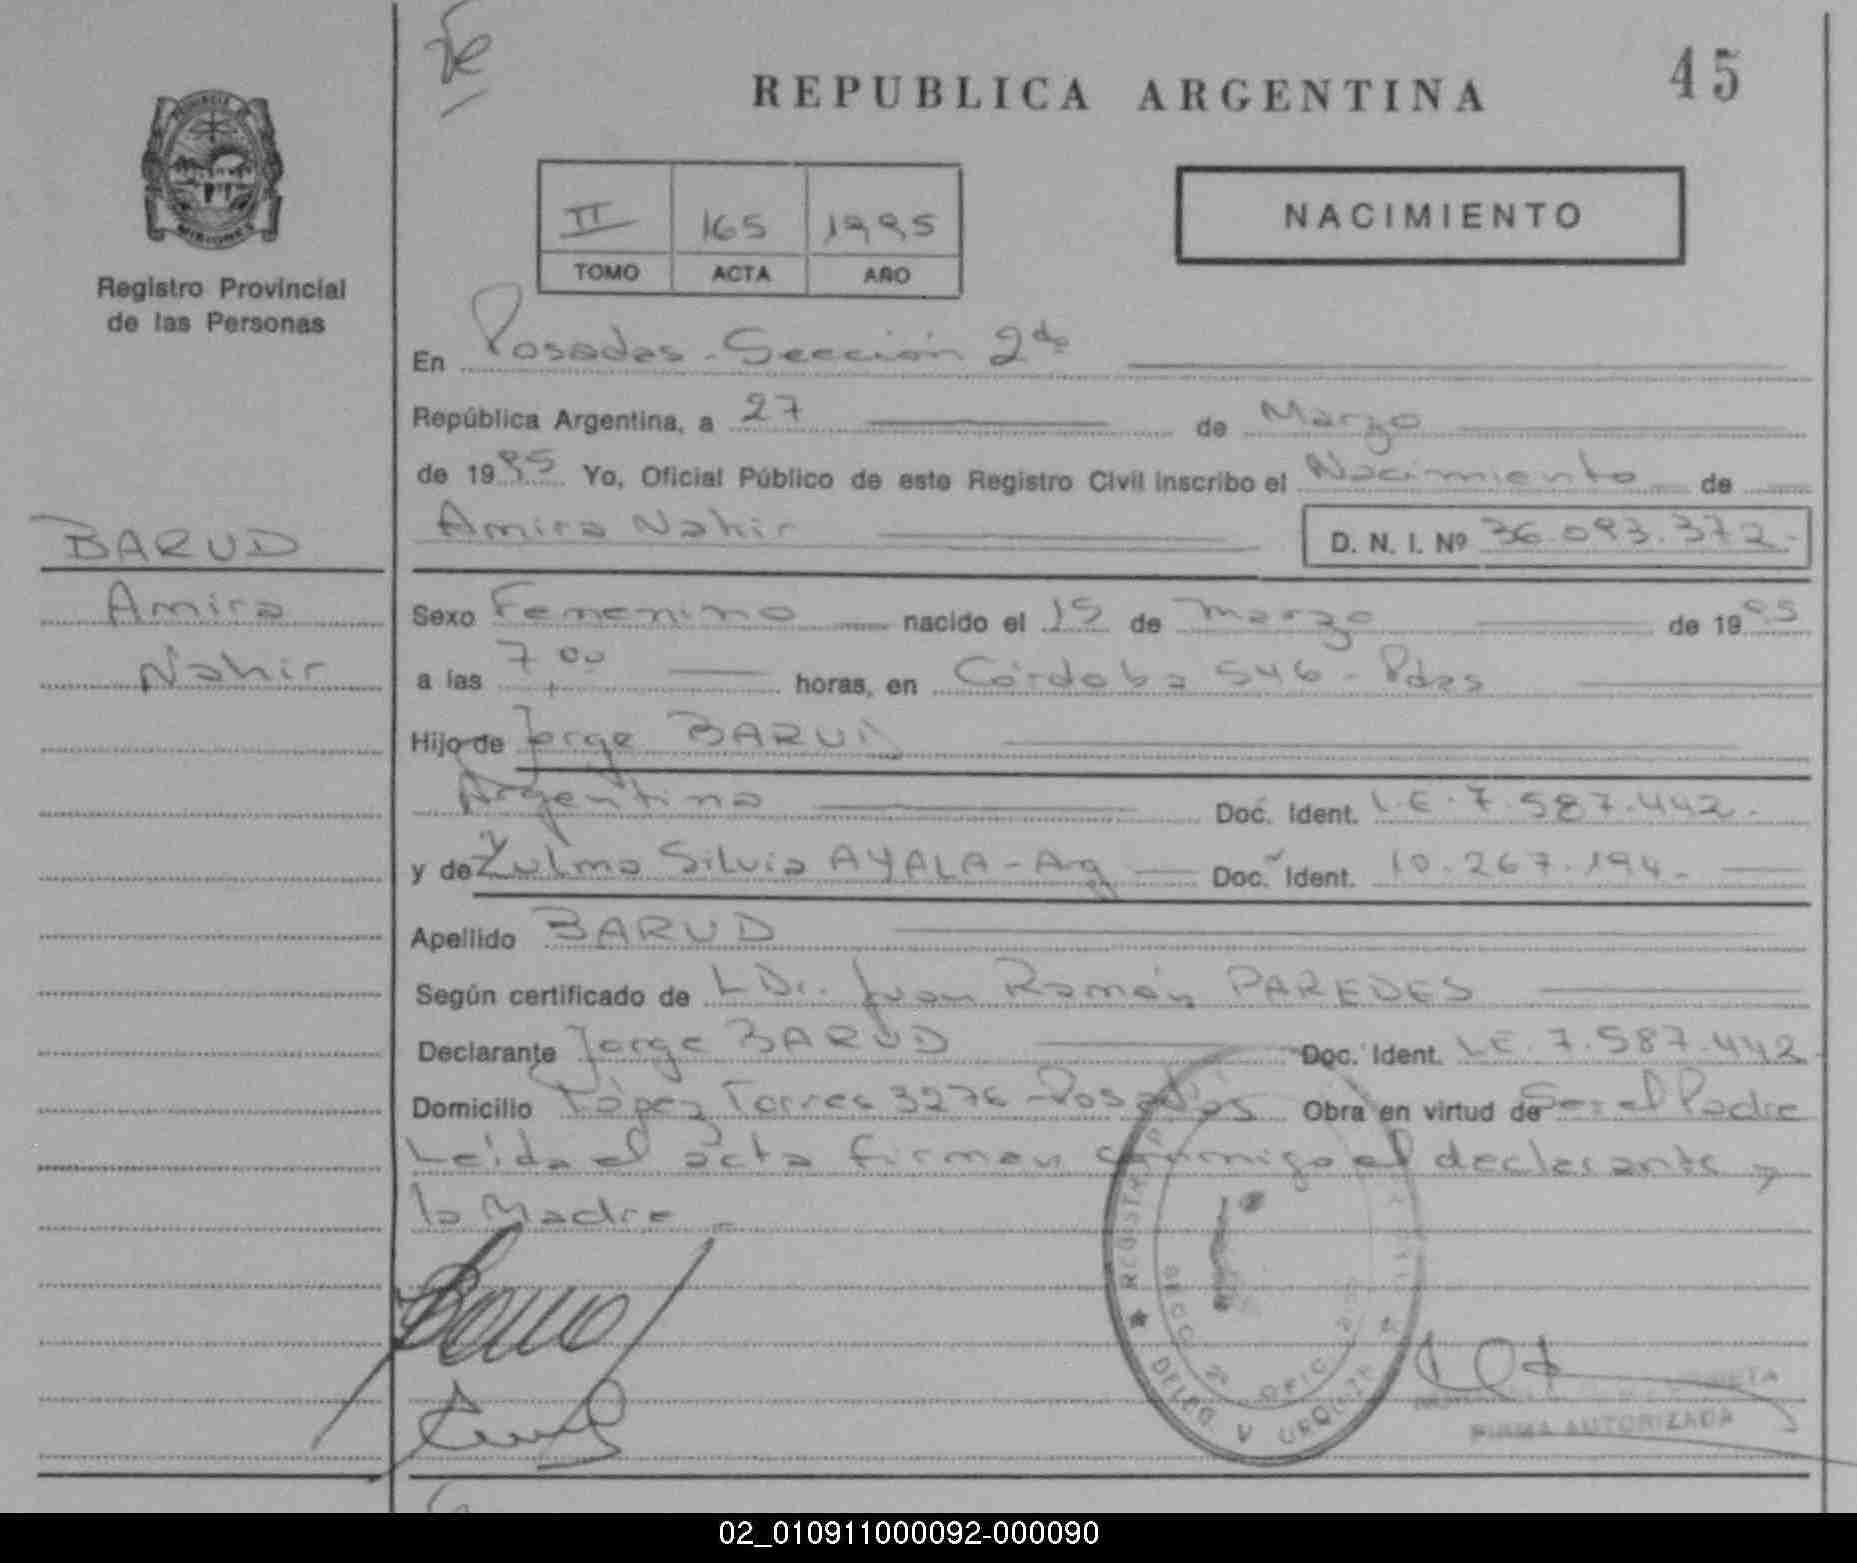 45
REPUBLICA ARGENTINA
II 165 1995
TOMO ACTA AÑO
NACIMIENTO
MISIONES
Registro Provincial
de las Personas
En Posadas - Sección 2da
República Argentina, a 27 de Marzo
de 1995 Yo, Oficial Público de este Registro Civil inscribo el Nacimiento de
Amira Nahir D. N. I. Nº 36.093.372.-
BARUD
Amira
Nahir
Sexo Femenino nacido el 15 de Marzo de 1995
a las 7,00 horas, en Córdoba 546 - Pdas
Hijo de Jorge BARUD
Argentino Doc. Ident. L.E. 7.587.442.-
y de Zulma Silvia AYALA - Arg Doc. Ident. 10.267.194.-
Apellido BARUD
Según certificado de LDr. Juan Ramón PAREDES
Declarante Jorge BARUD Doc. Ident. LE. 7.587.442
Domicilio López Torres 3276 - Posadas Obra en virtud de Ser el Padre
Leída el acta firman conmigo el declarante y
la Madre.-
DELEG. V URQUIZA
FIRMA AUTORIZADA
02_010911000092-000090